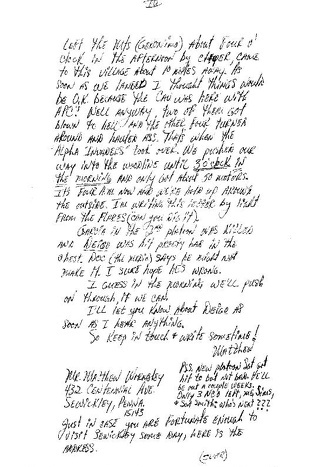 Left the Hills (Geronimo) about four o'
clock in the afternoon by chopper, came
to this village about 10 miles away. As
soon as we landed I thought things would
be O.K. because the CAV was here with
APC! Well anyway, two of them got
blown to hell and the other four turned
around and hauled ass. That when the
Alpha took over. We pushed our
way into the woodline until 3 o'clock in
the morning and only got about 30 meters.
It's four A.M. now and we're held up around
the outside. I'm writing this letter by light
from the flares (can you dig it).
Garcia in the 2nd platoon was killed
and was hit pretty bad in the
chest. Doc (the medic) says he might not
make it. I sure hope his wrong.
I guess in the morning we'll push
on through, if we can.
I'll let you know about as
soon as I hear anything.
So keep in touch & write sometime!
Matthew
Mr. Matthew
432 Centennial Ave.
Sewickley, Penna.
15143
Just in case you are fortunate enough to
visit Sewickley some day, here is the
address.
P.S. New platoon Sgt got
hit to but not bad. He'll
be out a couple weeks.
Only 3 NCO left, me,
& Sgt Smith; who's next ???